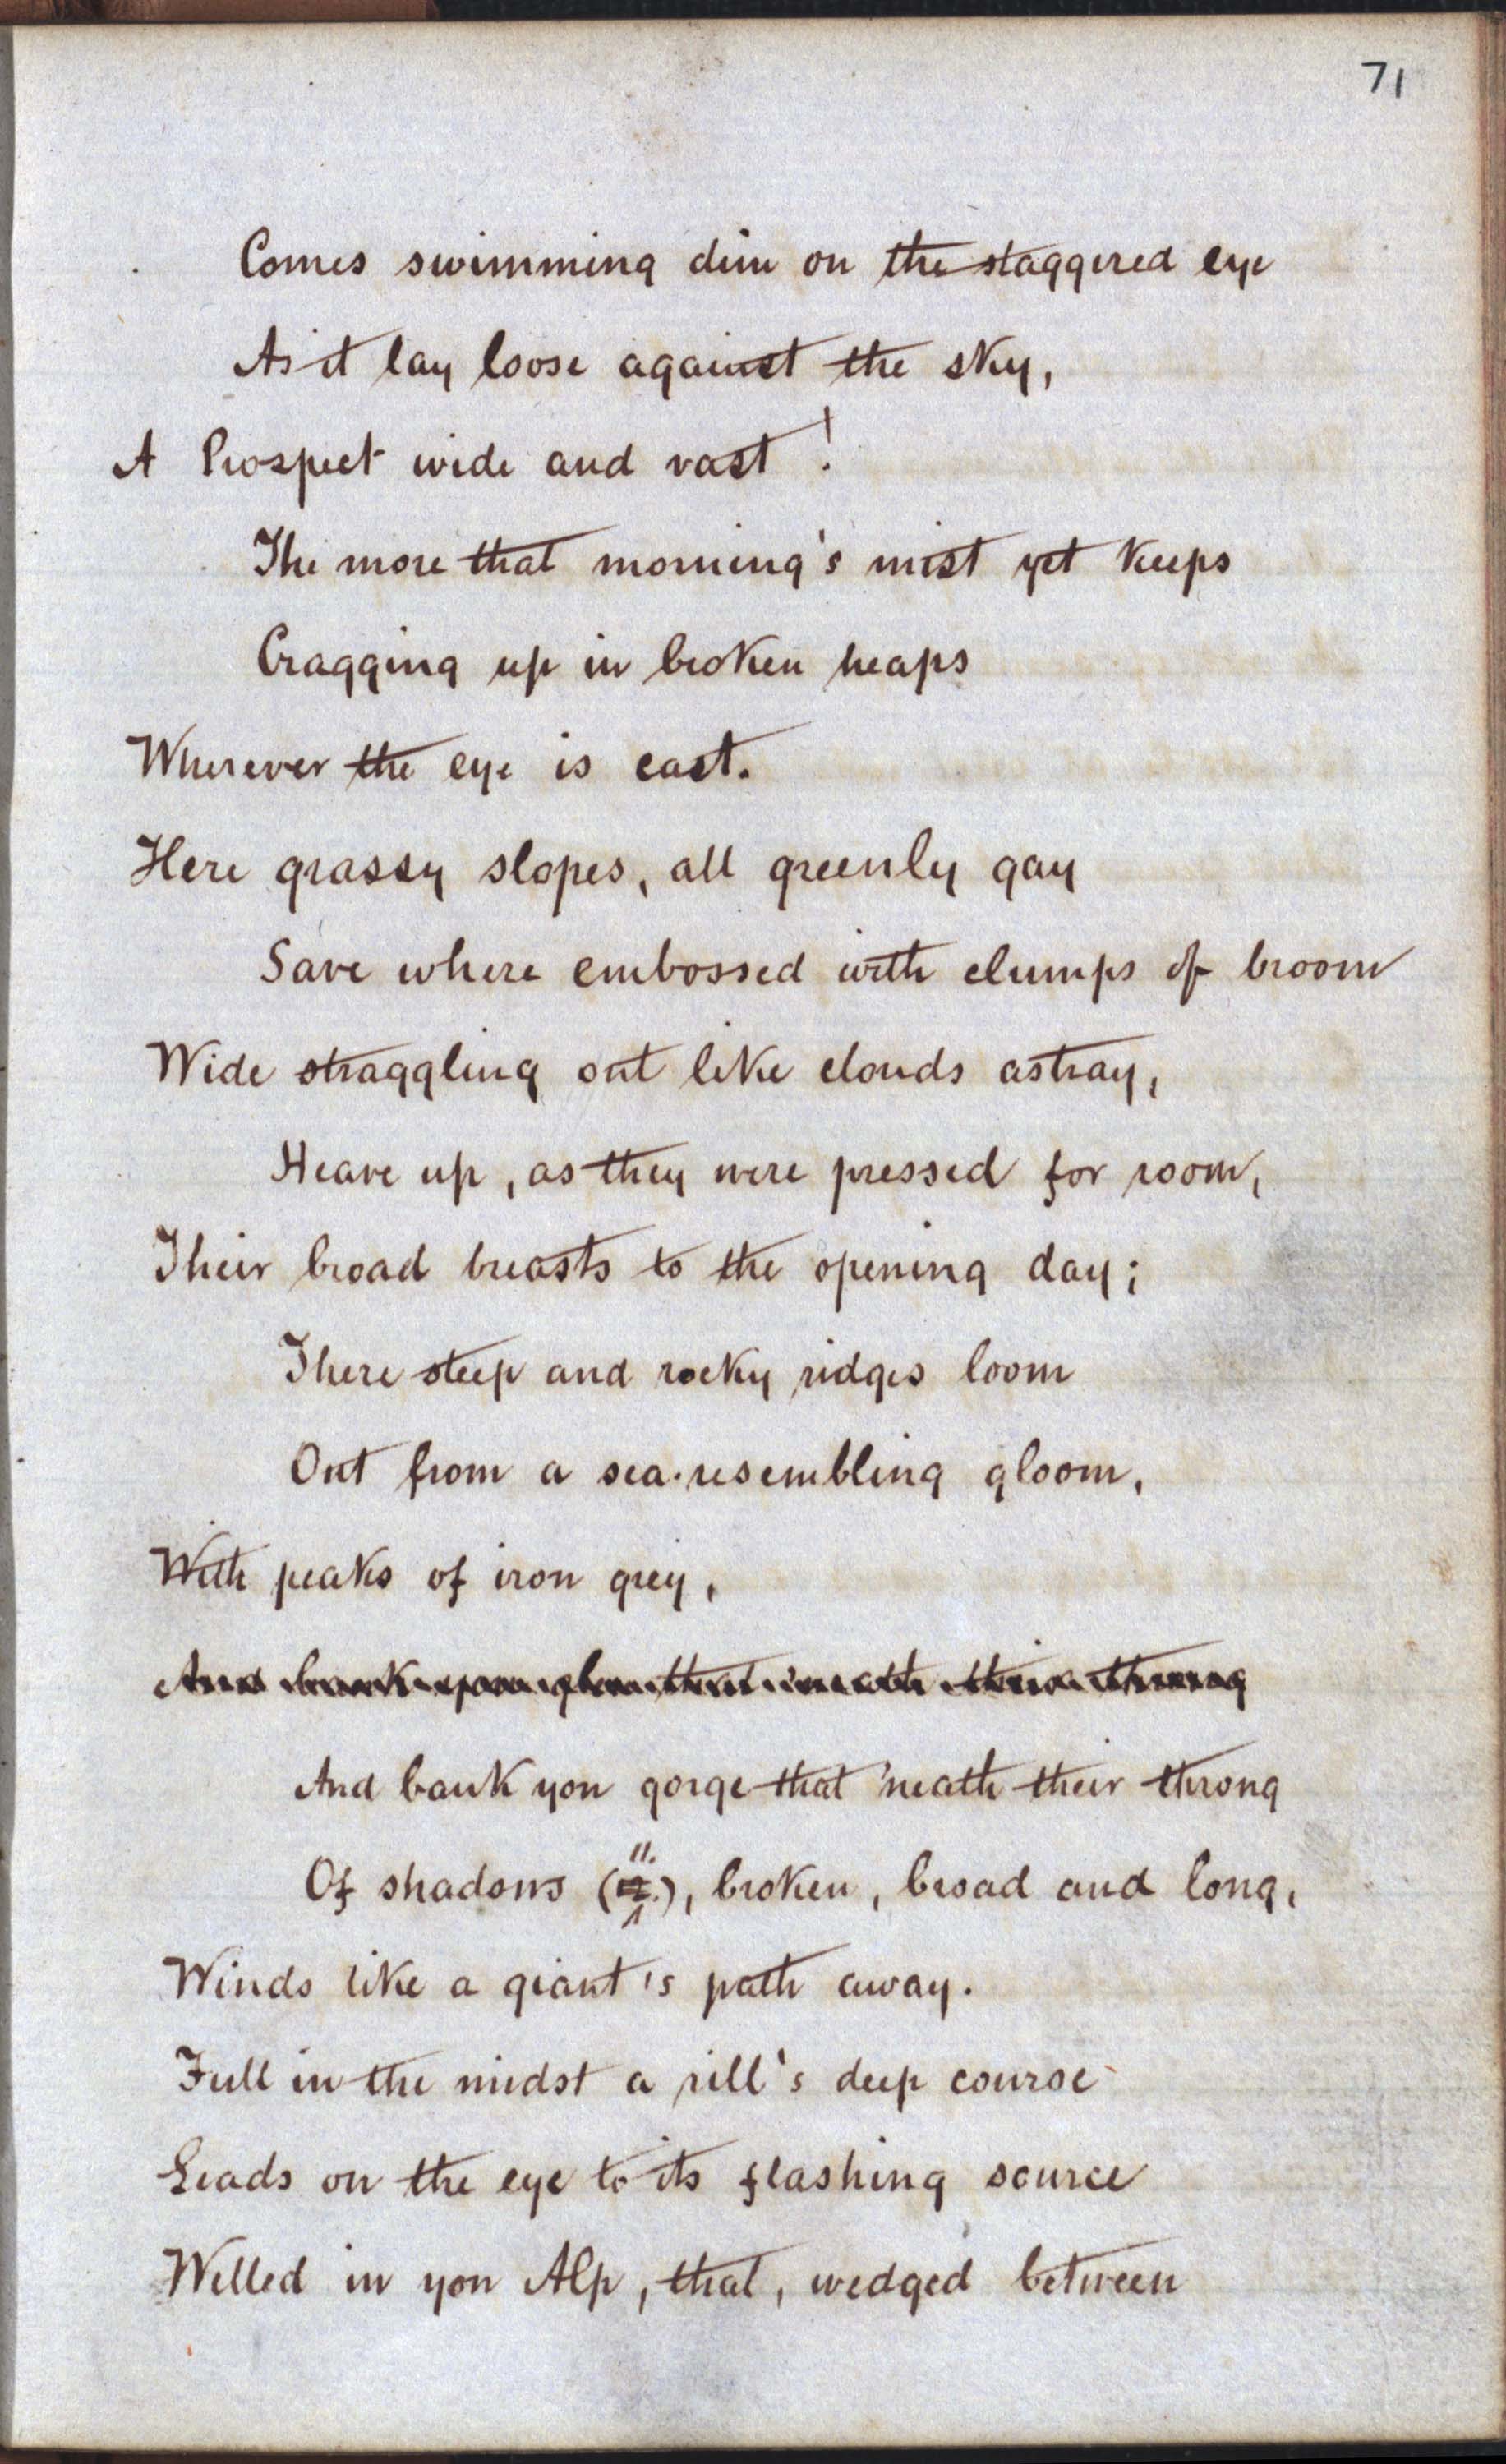 71
Comes swimming dim on the staggered eye
As it lay loose against the sky,
A Prospect wide and vast!
The more that morning's mist yet keeps
Cragging up in broken heaps
Wherever the eye is cast.
Here grassy slopes, all greenly gay
Save where embossed with clumps of broom
Wide straggling out like clouds astray,
Heave up, as they were pressed for room,
Their broad breasts to the opening day;
There steep and rocky ridges loom
Out from a sea-resembling gloom,
With peaks of iron grey,
And bank yon that 'neath their throng
And bank yon gorge that 'neath their throng
Of shadows (11.), broken, broad and long,
Winds like a giant's path away.
Full in the midst a rill's deep course
Leads on the eye to its flashing source
Welled in yon Alp, that, wedged between